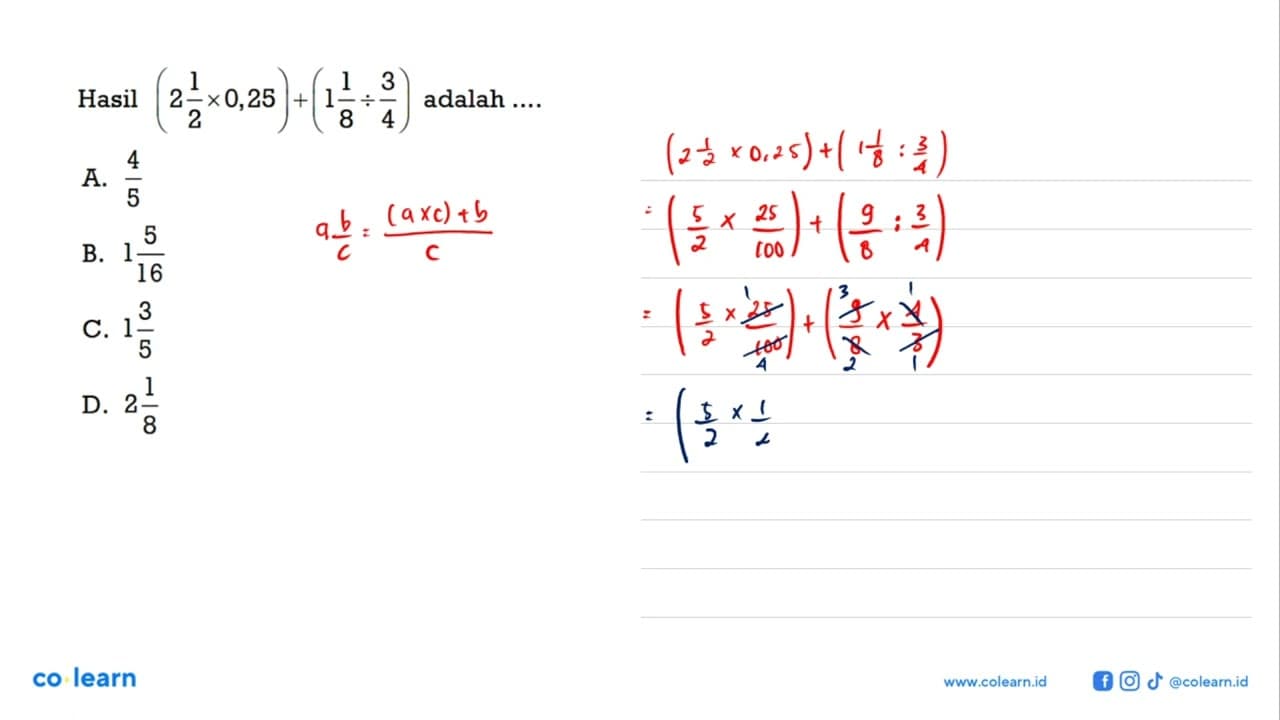 Hasil (2 1/2 × 0,25) + (1 1/8 ÷ 3/4) adalah ....
A. 4/5
B. 1 5/16
C. 1 3/5
D. 2 1/8
a b/c = (a x c) + b / c
(2 1/2 x 0,25) + (1 1/8 : 3/4)
= (5/2 x 25/100) + (9/8 : 3/4)
= (5/2 x 25/100) + (9/8 x 4/3)
1 4 3 2 1 1
= (5/2 x 1/4
co learn
www.colearn.id @colearn.id